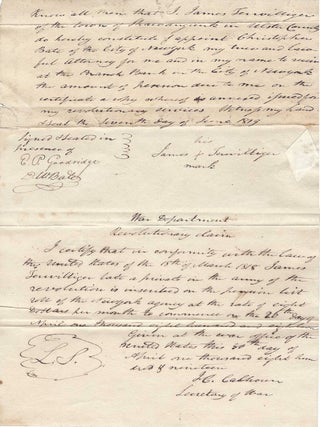 Know all men that I James Terwilliger
of the town of Shawangunk in Ulster County
do hereby constitute & appoint Christopher
Bate of the City of Newyork my true and lawful
Attorney for me and in my name to receive
at the Branch Bank in the City of Newyork
the amount of pension due to me on the
certificate a copy whereof is annexed
my revolutionary services Witness my hand
the Seventh day of June 1819
Signed & sealed in
presence of
E. P. Goodridge
his
James x Terwilliger
mark
War Department
Revolutionary claim
I certify that in conformity with the Law of
the United States of the 18th of March 1818 James
Terwilliger late a private in the army of the
revolution is inscribed on the pension list
roll of the Newyork agency at the rate of eight
Dollars per month to commence on the 20th day of
April one thousand eight hundred and
Given at the war office of the
United States this 30th day of
April one thousand eight hun
dred & nineteen
L.S.
J C. Calhoun
Secretary of War